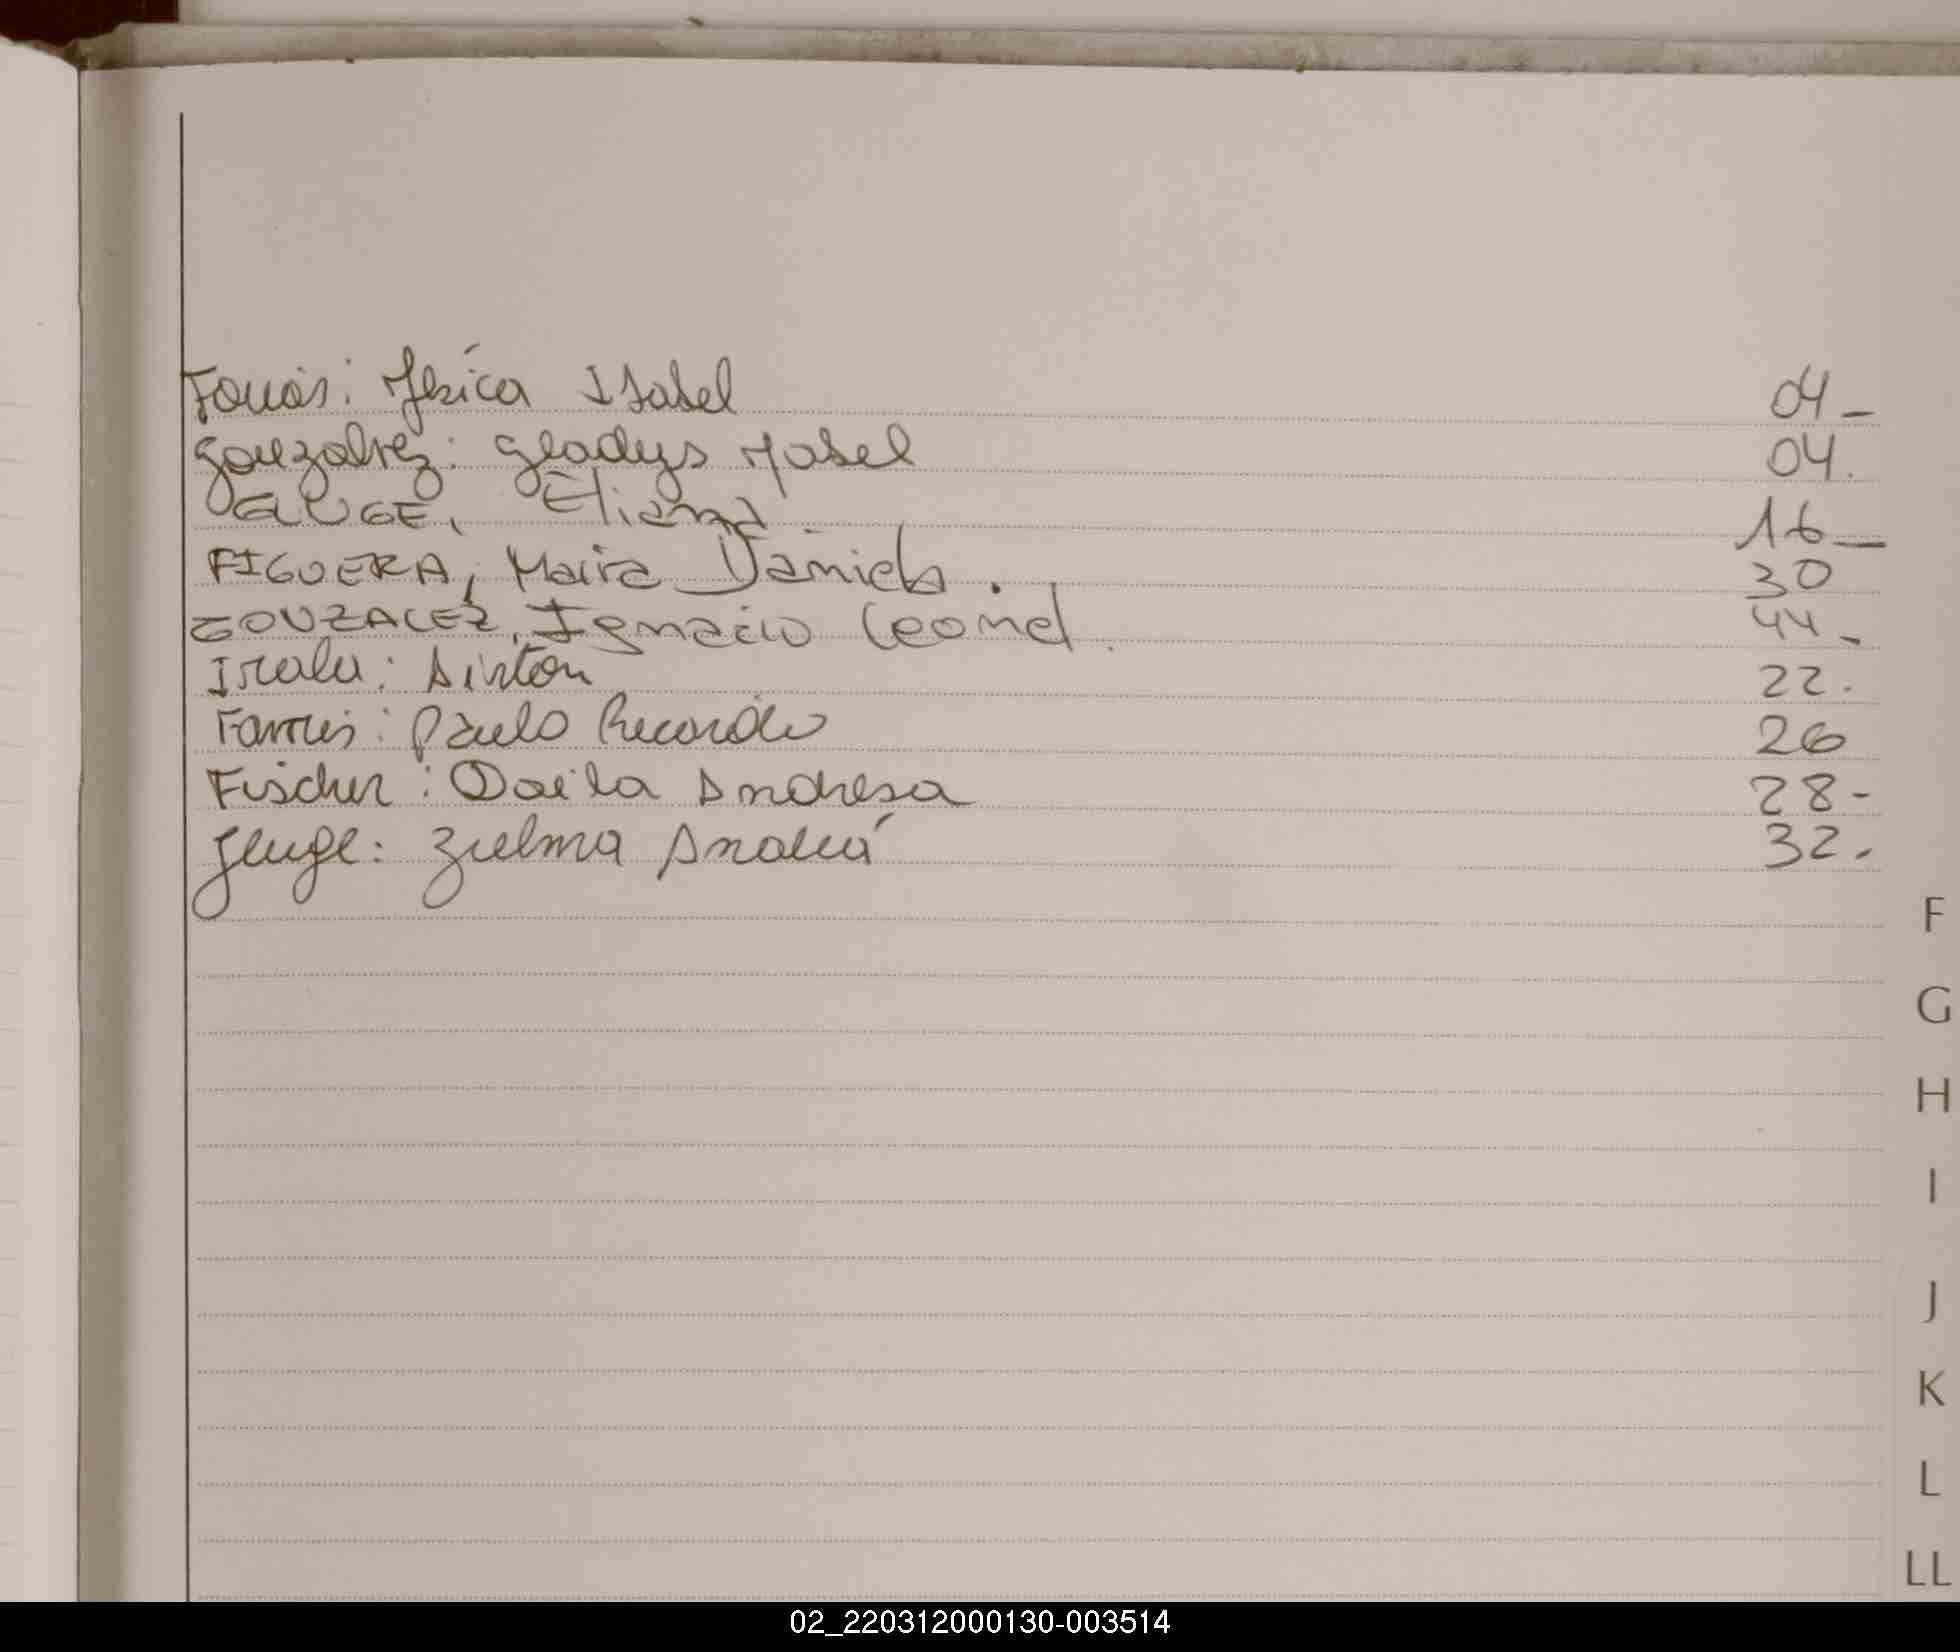 Farías: Yésica Isabel 04-
Gonzalez: Gladys Mabel 04.
GLUGE, Eliana 16-
FIGUERA, Maira Daniela. 30
GONZALEZ, Ignacio Leonel. 44-
Irala: Airton 22.
Farrias: Paulo Ricardo 26
Fischer: Daila Andresa 28-
Gluge: Zulma 32.
F
G
H
I
J
K
L
LL
02_220312000130-003514